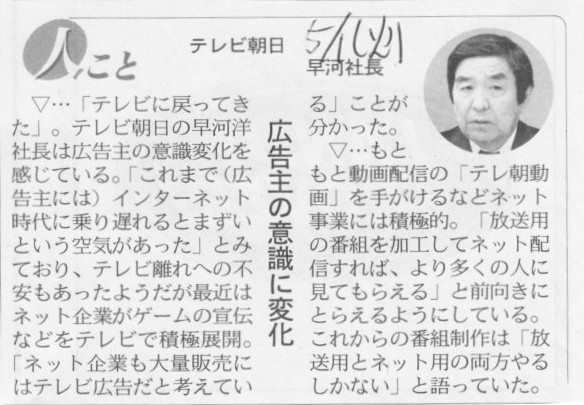 人,こと
テレビ朝日
早河社長
広告主の意識に変化
▽…「テレビに戻ってき
た」。テレビ朝日の早河洋
社長は広告主の意識変化を
感じている。「これまで(広
告主には)インターネット
時代に乗り遅れるとまずい
という空気があった」とみ
ており、テレビ離れへの不
安もあったようだが最近は
ネット企業がゲームの宣伝
などをテレビで積極展開。
「ネット企業も大量販売に
はテレビ広告だと考えてい
る」ことが
分かった。
▽…もと
もと動画配信の「テレ朝動
画」を手がけるなどネット
事業には積極的。「放送用
の番組を加工してネット配
信すれば、より多くの人に
見てもらえる」と前向きに
とらえるようにしている。
これからの番組制作は「放
送用とネット用の両方やる
しかない」と語っていた。